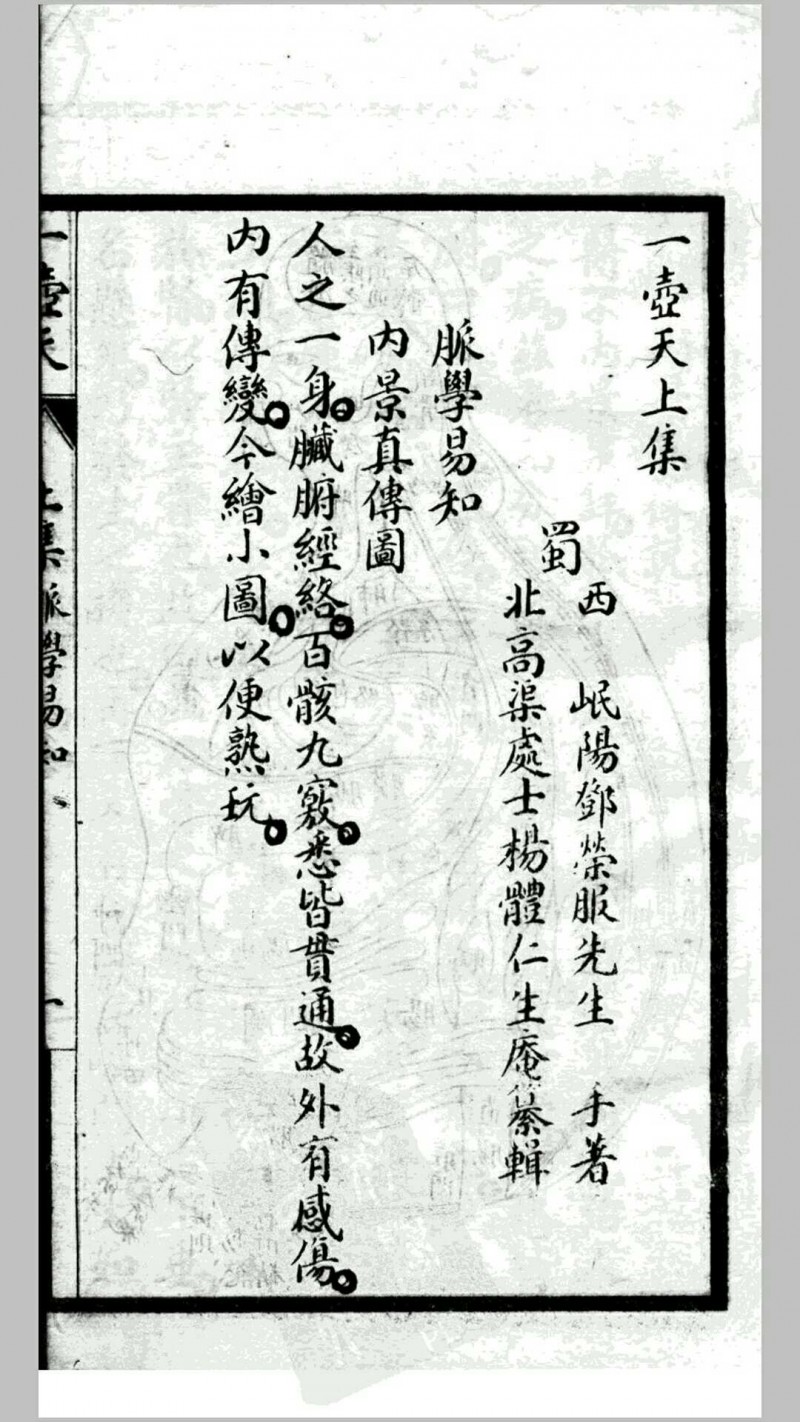 一壺天上集
蜀
西　岷陽鄧榮服先生　手著
北高渠處士楊體仁生庵纂輯
脈學易知
內景真傳圖
人之一身。臟腑經絡。百骸九竅。悉皆貫通。故外有感傷。
內有傳變。今繪小圖。以便熟玩。
一壺天
上集脈學易知
一